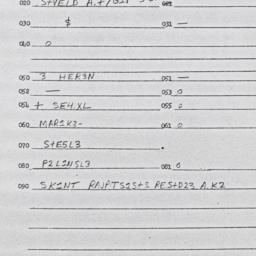 020 041
030 $ 031 —
040 0
050 3 HER3N 051 —
052 — 053 0
054 + SE4.XL 055 0
060 MAR1K2- 061 0
070 S+E5L3
080 P2L1N5L3 081 0
090 SK1NT RAJPTS1S+S RES+D23 A.K2